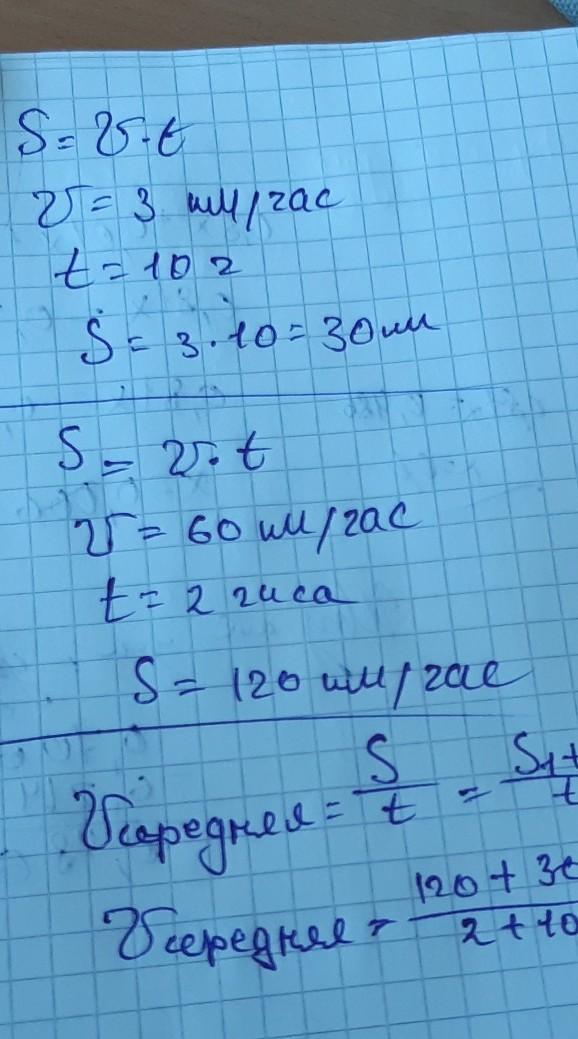 S = v·t
v = 3 км/час
t = 10 ч
S = 3·10 = 30 км
S = v·t
v = 60 км/час
t = 2 часа
S = 120 км/час
Vсередняя = S/t = S1+/t
Vсередняя = 120 + 30/2 + 10